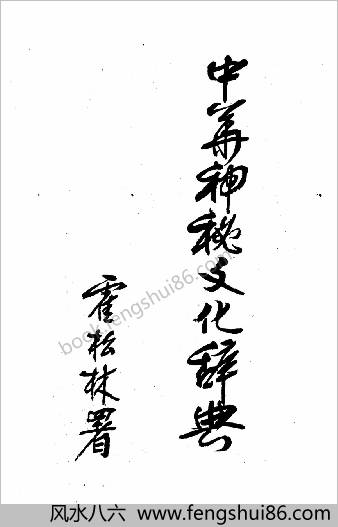 中华神秘文化辞典
霍松林署
book.fengshui86.com
风水八六 www.fengshui86.com